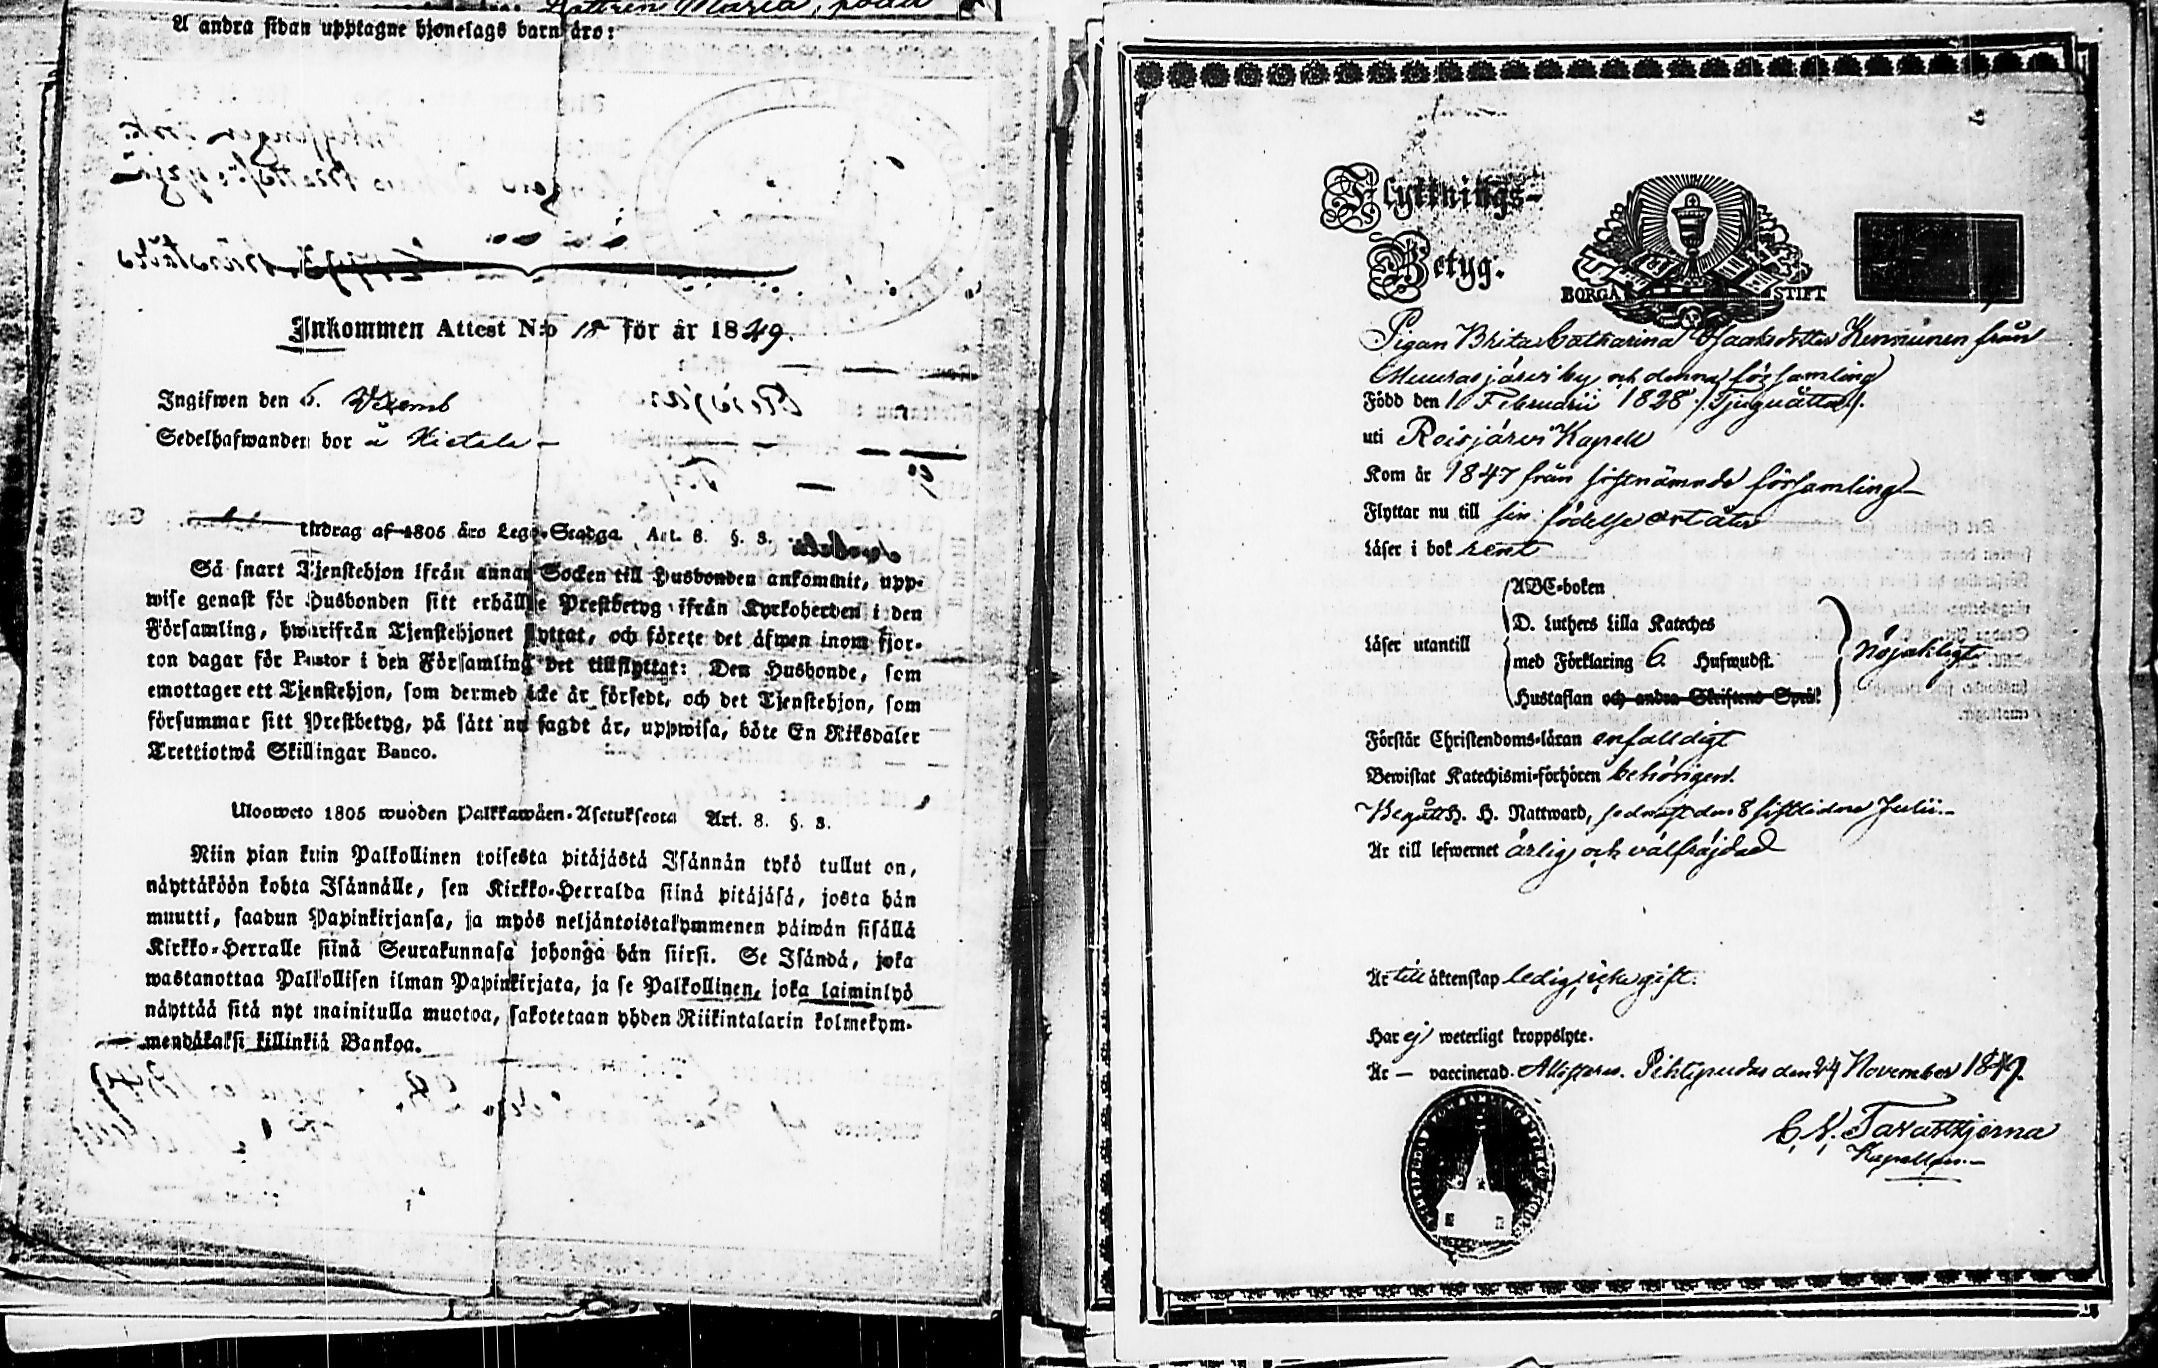 Kattrin Maria, född
A andra sidan upptagne hjonelags barn äro:
Inkommen Attest N:o 18 för år 1849.
Ingifwen den 6. Decemb
Sedelhafwanden bor å Hietala
Utdrag af 1805 års Lego-Stadga Art. 8. §. 3.
Så snart Tjenstehjon ifrån annan Socken till Husbonden ankommit, upp-
wise genast för Husbonden sitt erhållne Prestbetyg ifrån Kyrkoherden i den
Församling, hwarifrån Tjenstehjonet flyttat, och förete det äfwen inom fjor-
ton dagar för Pastor i den Församling det tillflyttat: Den Husbonde, som
emottager ett Tjenstehjon, som dermed icke är försedt, och det Tjenstehjon, som
försummar sitt Prestbetyg, på sätt nu sagdt är, uppwisa, böte En Riksdaler
Trettiotwå Skillingar Banco.
Ulosweto 1805 wuoden Palkkawäen-Asetuksesta Art. 8. §. 3.
Niin pian kuin Palkollinen toisesta pitäjästä Isännän tykö tullut on,
näyttäköön kohta Isännälle, sen Kirkko-Herralda siinä pitäjäsä, josta hän
muutti, saadun Papinkirjansa, ja myös neljäntoistakymmenen päiwän sisällä
Kirkko-Herralle siinä Seurakunnasa johonga hän siirsi. Se Isändä, joka
wastanottaa Palkollisen ilman Papinkirjata, ja se Palkollinen, joka laiminlyö
näyttää sitä nyt mainitulla muotoa, sakotetaan yhden Riikintalarin kolmekym-
mendäkaksi killinkiä Bankoa.
Flyttnings-
Betyg.
BORGÅ STIFT
Pigan Brita Catharina Isaaksdotter Kinnunen från
Muurasjärvi by och denna församling
Född den 1 Februarii 1828 /:Tjuguåtta:/.
uti Reisjärvi Kapell
Kom år 1847 från sistnämnde församling
Flyttar nu till sin födelse ort åter
Läser i bok rent
Läser utantill
ABC-boken
D. Luthers Lilla Kateches
med Förklaring 6. Hufwudst.
Hustaflan och andra Skriftens Språk
Nöjaktligt
Förstår Christendoms-läran enfaldigt
Bewistat Katechismi-förhören behörigen.
Begått H. H. Nattward, sednast den 8 sistledne Julii.
Är till lefwernet ärlig och välfräjdad
Är till äktenskap ledig, icke gift.
Har ej weterligt kroppslyte.
Är — vaccinerad. Attesteras. Pihtipudas den 24 November 1849.
C. N. Tavaststjerna
Kapellan.